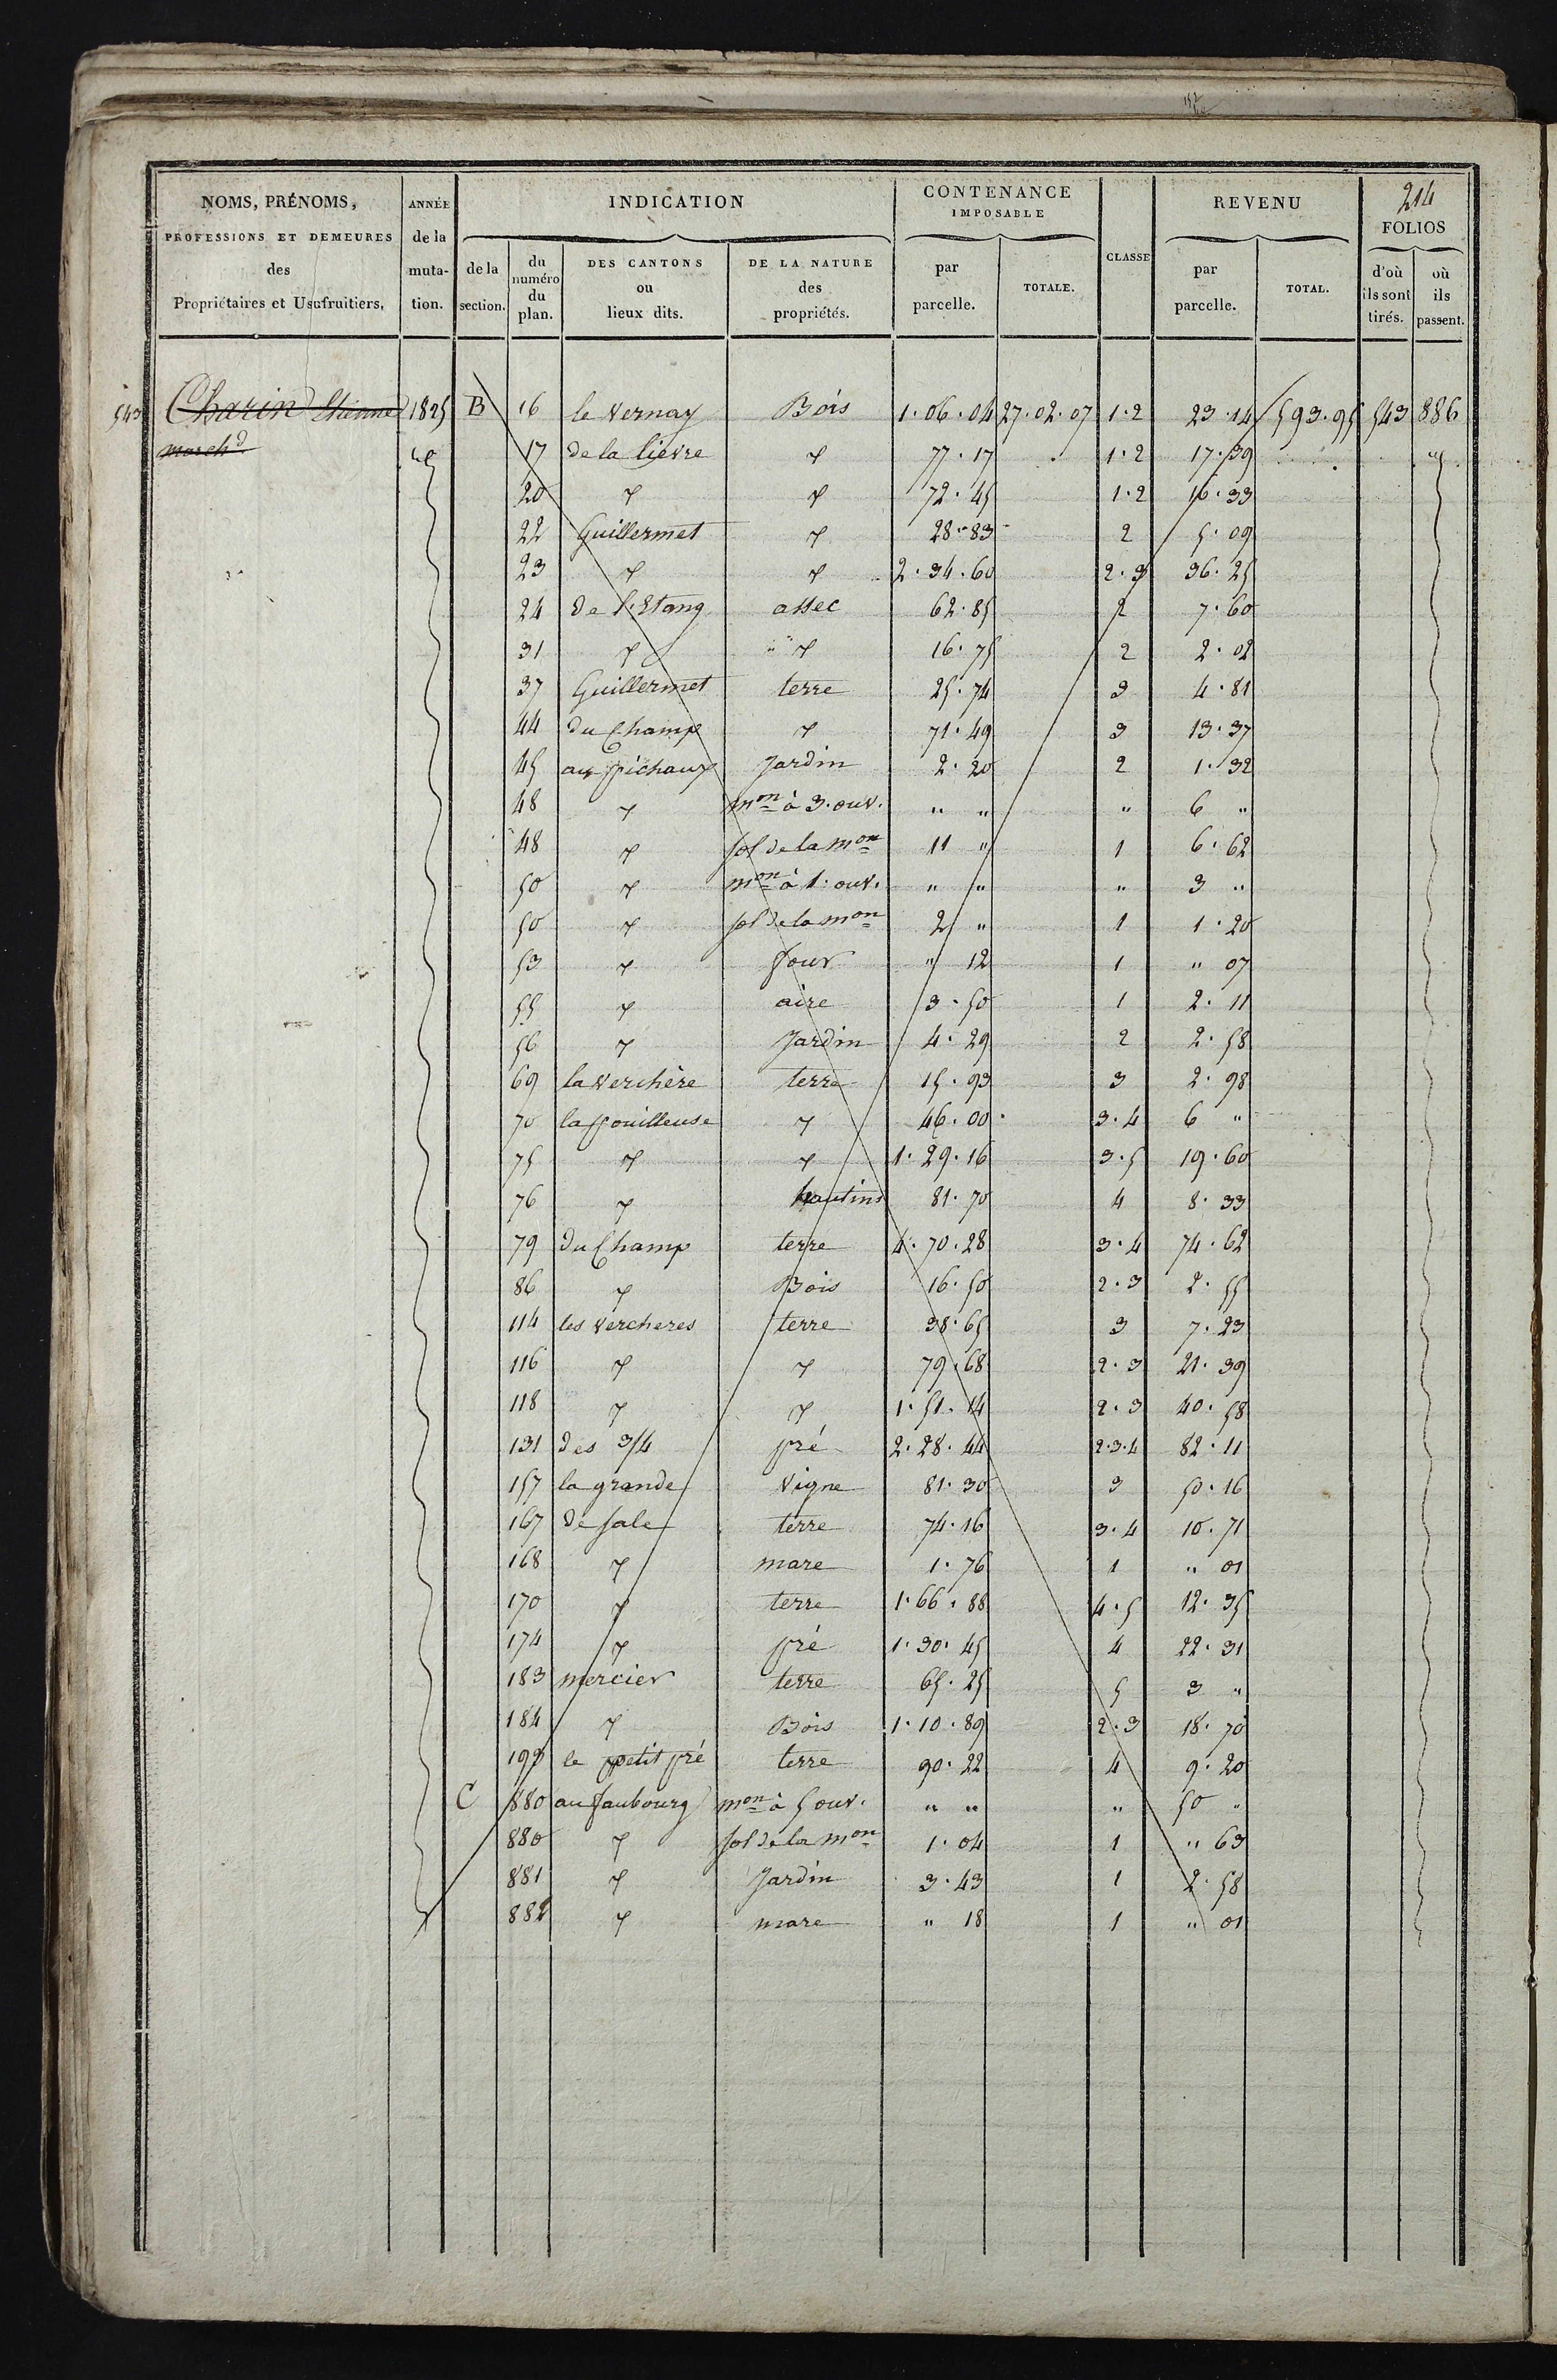 214
NOMS, PRÉNOMS, PROFESSIONS ET DEMEURES des Propriétaires et Usufruitiers,
ANNÉE de la muta- tion.
INDICATION
de la section.
du numéro du plan.
DES CANTONS ou lieux dits.
DE LA NATURE des propriétés.
CONTENANCE IMPOSABLE
par parcelle.
TOTALE.
CLASSE
REVENU
par parcelle.
TOTAL.
FOLIOS
d'où ils sont tirés.
où ils passent.
543 Charin Etienne 1825 B 16 le Vernay Bois 1·06·04 27·02·07 1·2 23·14 593·95 543 886
march.d 17 de la lièvre 77·17 1·2 17·39
20 72·45 1·2 16·33
22 Guillermet 28·83 2 5·09
23 2·34·60 2·3 36·25
24 de l'Etang assec 62·85 2 7·60
31 16·75 2 2·02
37 Guillermet terre 25·74 3 4·81
44 du Champ 71·49 3 13·37
45 au pichaux Jardin 2·20 2 1·32
48 mon à 3·ouv. " " " 6 "
48 sol de la mon 11 " 1 6·62
50 mon à 1·ouv. " " " 3 "
50 sol de la mon 2 " 1 1·20
53 four " 12 1 " 07
55 aire 3·50 1 2·11
56 Jardin 4·29 2 2·58
69 la verchère terre 15·93 3 2·98
70 la pouilleuse 46·00 3·4 6 "
75 1·29·16 3·5 19·60
76 hautins 81·70 4 8·33
79 du Champ terre 4·70·28 3·4 74·62
86 Bois 16·50 2·3 2·55
114 les vercheres terre 38·65 3 7·23
116 79·68 2·3 21·39
118 1·51·14 2·3 40·58
131 des 3/4 pré 2·28·44 2·3·4 82·11
157 la grande vigne 81·30 3 50·16
167 de sale terre 74·16 3·4 10·71
168 mare 1·76 1 " 01
170 terre 1·66·88 4·5 12·35
174 pré 1·30·45 4 22·31
183 mercier terre 65·25 5 3 "
184 Bois 1·10·89 2·3 18·70
le petit pré terre 90·22 4 9·20
C 880 au faubourg mon à 5 ouv. " " " 50 "
880 sol de la mon 1·04 1 " 63
881 Jardin 3·43 1 2·58
882 mare " 18 1 " 01